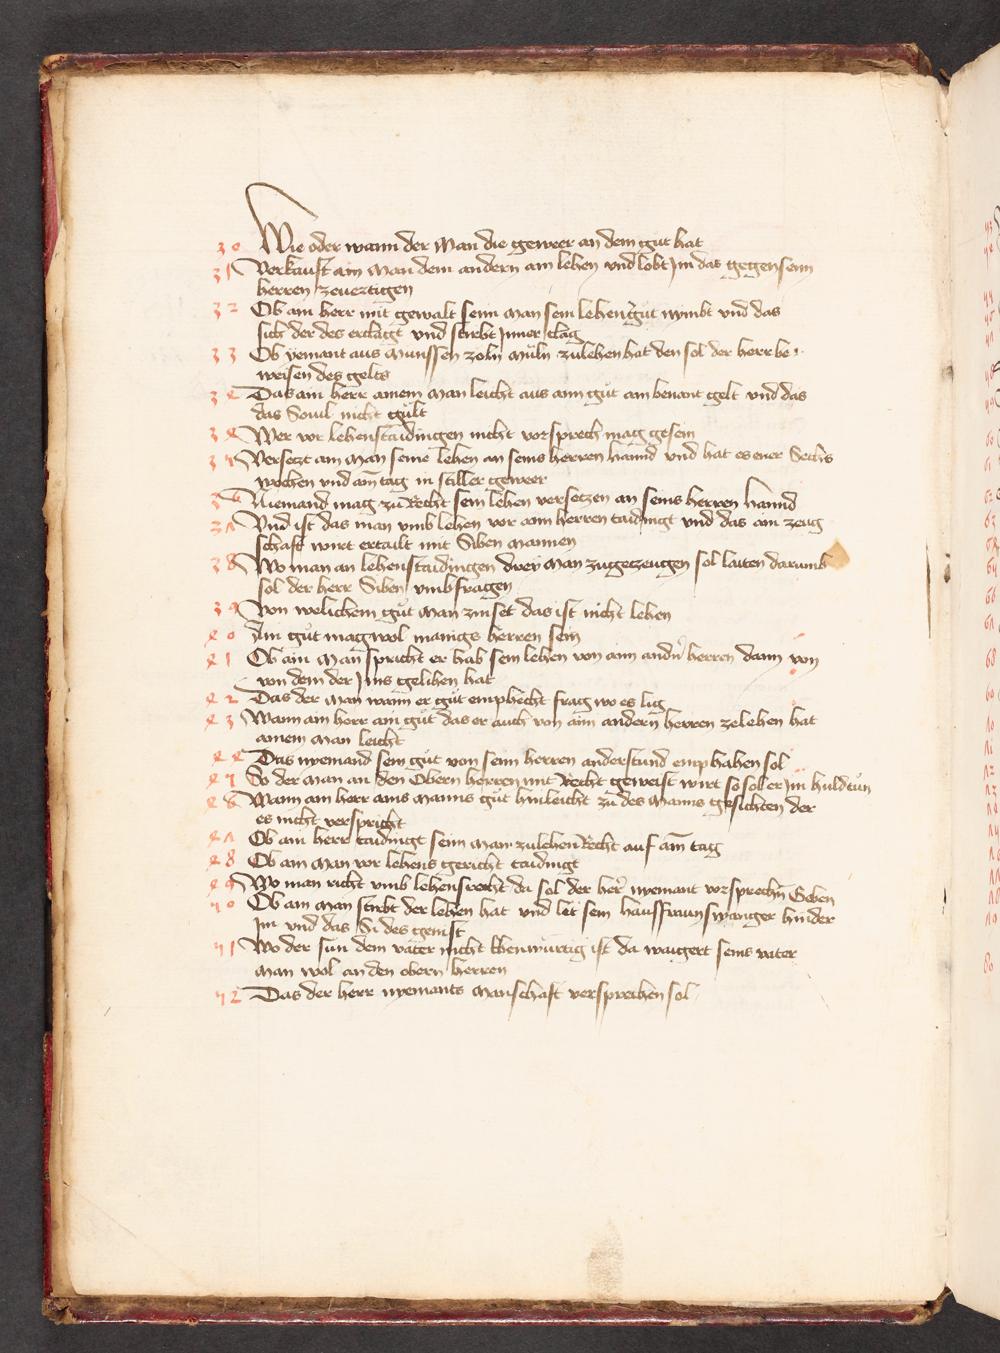 30 Wie oder wann der Man die gewer an dem gut hat
31 Verkauft ain Man dem andern ain lehen vnd lobt Jm das gegen seim
herren zeuertigen
32 Ob ain herr mit gewalt seim Man sein lehenguͦt nymbt vnd das
sich der des erclagt vnd stirbt Jnner clag
33 Ob yemant aus Munssen zoln Muͤln zulehen hat den sol der herr be
weisen des gelts
34 Das ain herr ainem Man leicht aus aim guͦt ain benant gelt vnd das
das Souil nicht guͤlt
35 Wer vor lehenstaidingen nicht vorsprech mag gesein
Versetzt ain Man seine lehen an seins herren hannd vnd hat es ener Sechs
wochen vnd ain tag in stiller gewer
36 Niemand mag zu Recht sein lehen versetzen an seins herren hannd
37 Vnd ist das man vmb lehen vor aim herren taidingt vnd das ain zeug
schaft wirt ertailt mit Siben mannen
38 Wo man an lehenstaidingen drey Man zugetzeugen sol laiten darumb
sol der herr Siben vmbfragen
39 Von welichem guͦt Man zinset das ist nicht lehen
40 Ain guͦt mag wol manigs herren sein
41 Ob ain Man spricht er hab sein lehen von aim andern herren dann von
von dem der Jms gelihen hat
42 Das der Man wann er guͦt emphecht frag wo es lig
43 Wann ain herr ain guͦt das er auch von aim andern herren zelehen hat
ainem Man leicht
44 Das nyemand sein guͦt von seim herren anderstund emphahen sol
45 So der Man an den Obern herren mit Recht geweist wirt so sol er Jm huld tuͦn
46 Wann ain herr ains Manns guͦt hinleicht zu des Manns gesichten der
es nicht verspricht
47 Ob ain herr taidingt seim Man zulehen Recht auf ain tag
48 Ob ain Man vor lehens gericht taidingt
49 Wo man richt vmb lehensrecht da sol der herr nyemant vorsprechen Geben
50 Ob ain Man stirbt der lehen hat vnd let sein hausfraun swanger hinder
Jm vnd das Si des genist
51 Wo der sun dem vater nicht Ebenwurtig ist da waigert seins vater
Man wol an den obern herren
52 Das der herr nyemants Manschaft versprechen sol